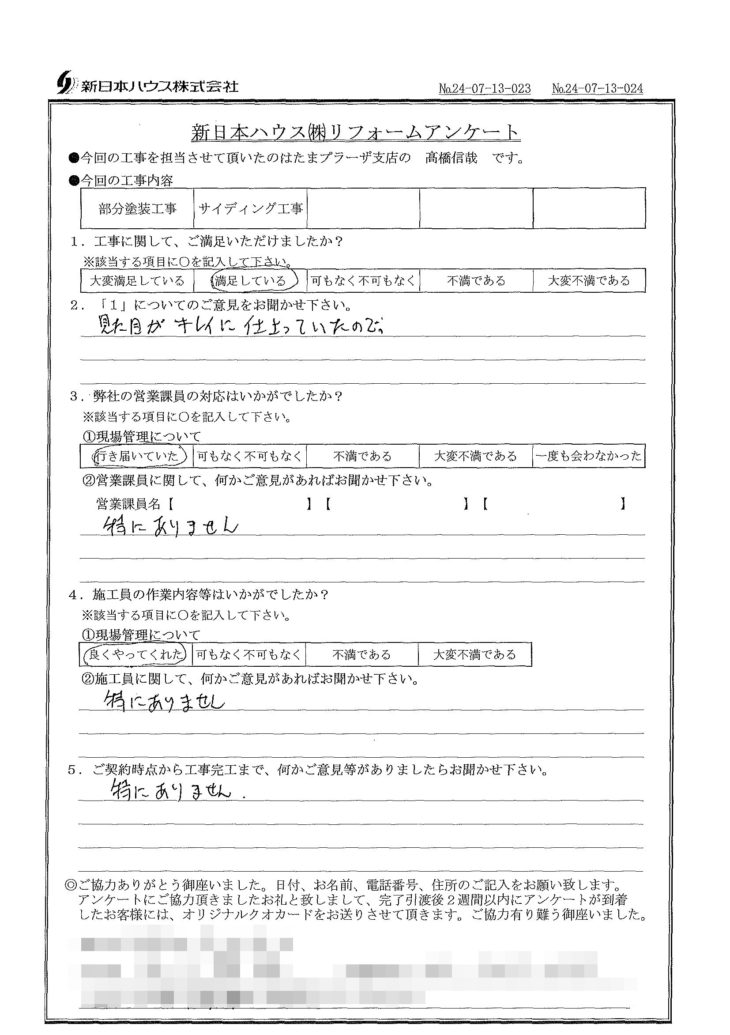 新日本ハウス株式会社
№24-07-13-023 №24-07-13-024
新日本ハウス㈱リフォームアンケート
●今回の工事を担当させて頂いたのはたまプラーザ支店の 髙橋信哉 です。
●今回の工事内容
部分塗装工事 サイディング工事
1．工事に関して、ご満足いただけましたか？
※該当する項目に○を記入して下さい。
大変満足している 満足している 可もなく不可もなく 不満である 大変不満である
2．「1」についてのご意見をお聞かせ下さい。
見た目がキレイに仕上っていたので。
3．弊社の営業課員の対応はいかがでしたか？
※該当する項目に○を記入して下さい。
①現場管理について
行き届いていた 可もなく不可もなく 不満である 大変不満である 一度も会わなかった
②営業課員に関して、何かご意見があればお聞かせ下さい。
営業課員名【 】【 】【 】
特にありません
4．施工員の作業内容等はいかがでしたか？
※該当する項目に○を記入して下さい。
①現場管理について
良くやってくれた 可もなく不可もなく 不満である 大変不満である
②施工員に関して、何かご意見があればお聞かせ下さい。
特にありません
5．ご契約時点から工事完工まで、何かご意見等がありましたらお聞かせ下さい。
特にありません.
◎ご協力ありがとう御座いました。日付、お名前、電話番号、住所のご記入をお願い致します。
アンケートにご協力頂きましたお礼と致しまして、完了引渡後2週間以内にアンケートが到着
したお客様には、オリジナルクオカードをお送りさせて頂きます。ご協力有り難う御座いました。